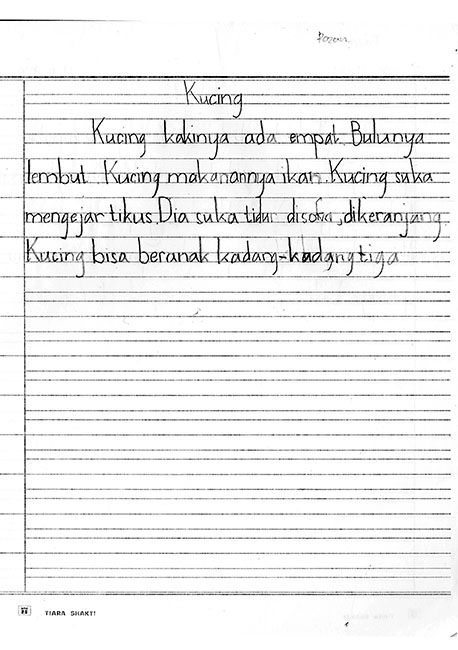 Kucing
Kucing kakinya ada empat. Bulunya
lembut. Kucing makanannya ikan. Kucing suka
mengejar tikus. Dia suka tidur disofa, dikeranjang
Kucing bisa beranak kadang-kadang tiga
TIARA SHAKTI